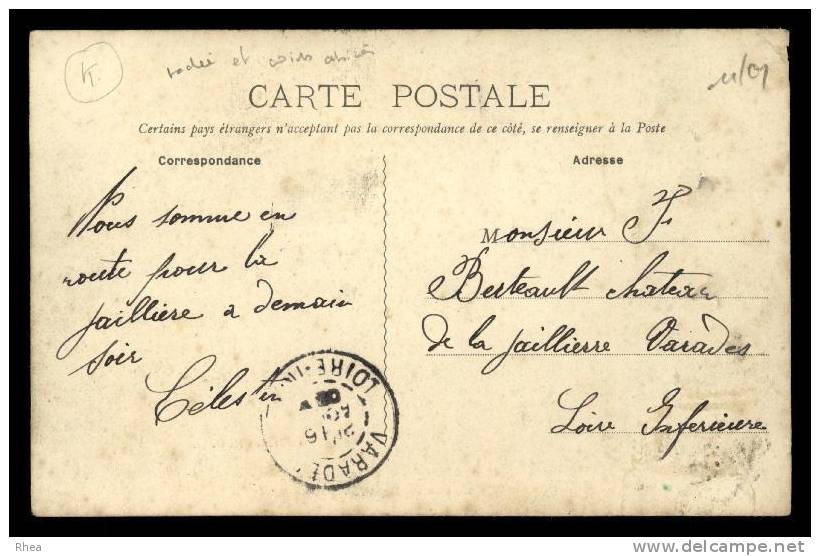 K.
et coins
11/09
CARTE POSTALE
Certains pays étrangers n'acceptant pas la correspondance de ce côté, se renseigner à la Poste
Correspondance
Nous somme en
route pour la
jaillière a demain
soir
Célestin
Adresse
Monsieur F
Berteault chateau
de la jaillierre Varades
Loire Inferieure
VARADES
LOIRE-IN
Rhea
delcampe.net